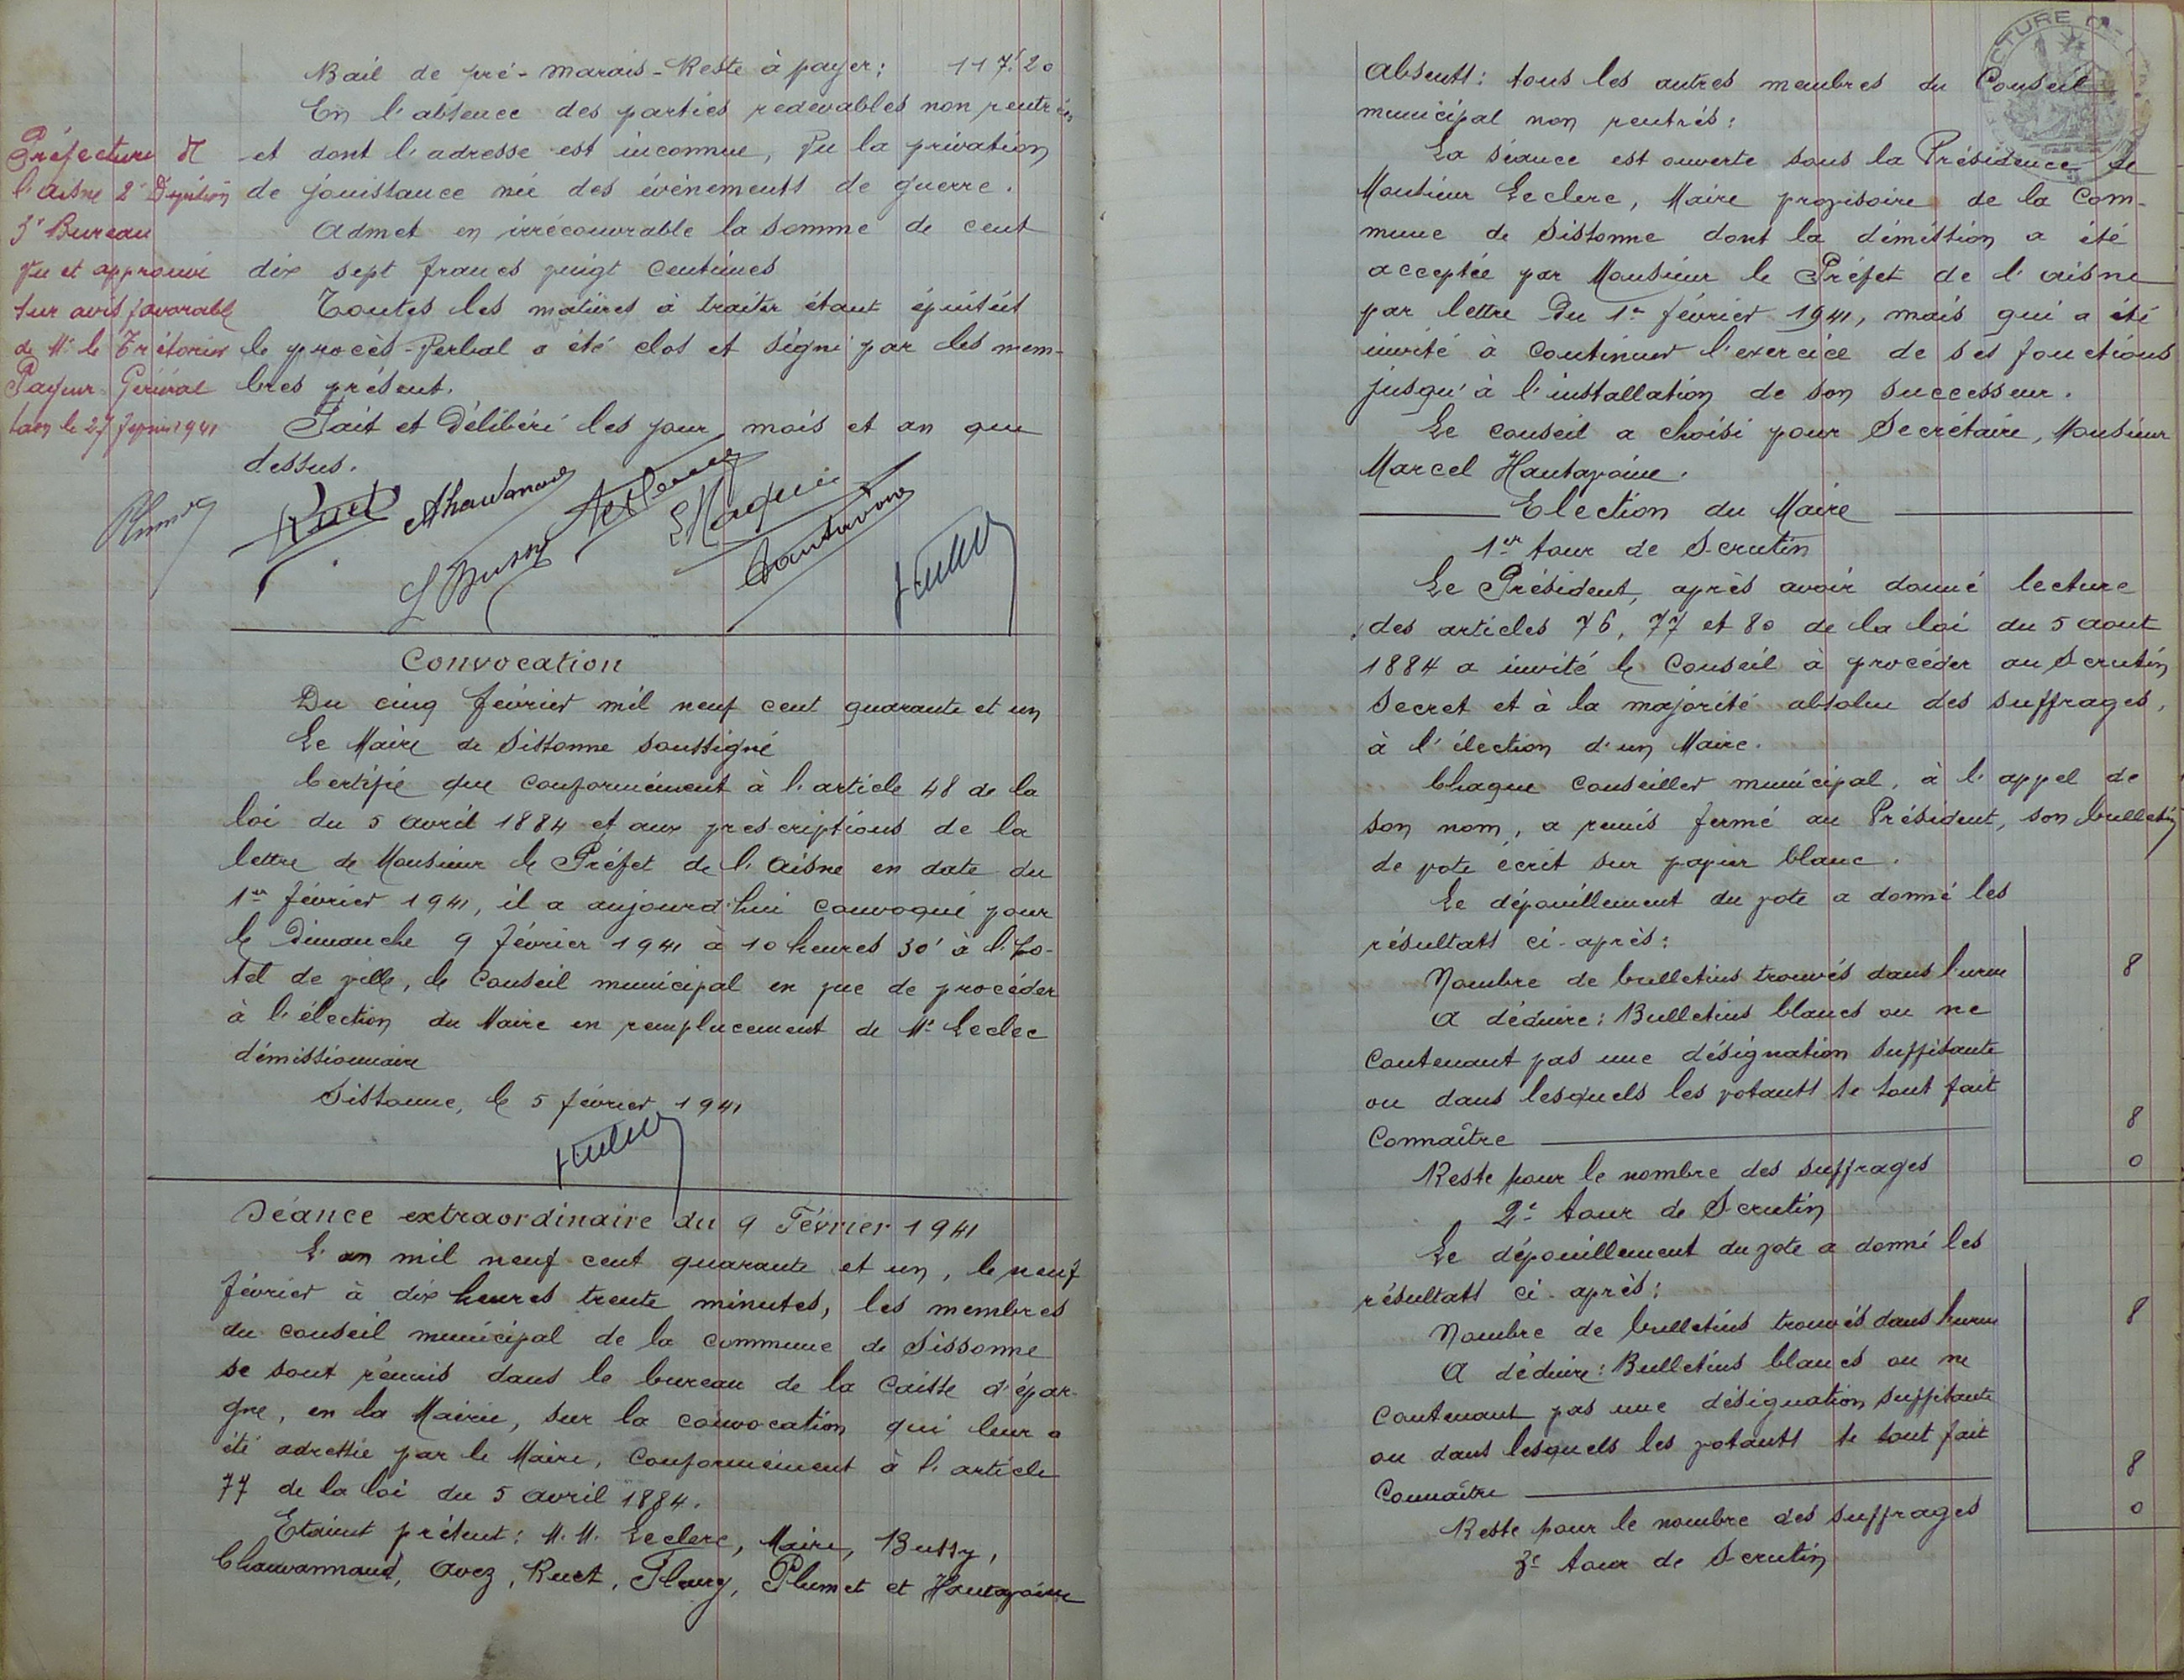 Bail de pré-marais - Reste à payer : 117f20
En l'absence des parties redevables non rentrées
et dont l'adresse est inconnue, Vu la privation
de jouissance née des événements de guerre.
Admet en irrécouvrable la somme de cent
dix sept francs vingt centimes
Toutes les matières à traiter étant épuisées
le procès-Verbal a été clos et signé par les mem-
bres présent.
Fait et Délibéré les jour mois et an que
dessus.
Préfecture de
l'Aisne 2e Division
3e Bureau
Vu et approuvé
sur avis favorable
de Mr le Trésorier
Payeur Général
Laon le 27 février 1941
Convocation
Du cinq février mil neuf cent quarante et un
Le Maire de Sissonne soussigné
Certifie que conformément à l'article 48 de la
loi du 5 avril 1884 et aux prescriptions de la
lettre de Monsieur le Préfet de l'Aisne en date du
1er février 1941, il a aujourd'hui convoqué pour
le Dimanche 9 février 1941 à 10 heures 30' à l'ho-
tel de ville, le Conseil municipal en vue de procéder
à l'élection du Maire en remplacement de Mr Leclec
démissionnaire
Sissonne, le 5 février 1941
Séance extraordinaire du 9 Février 1941
L'an mil neuf cent quarante et un, le neuf
février à dix heures trente minutes, les membres
du conseil municipal de la commune de Sissonne
se sont réunis dans le bureau de la Caisse d'épar-
gne, en la Mairie, sur la convocation qui leur a
été adressée par le Maire, conformément à l'article
77 de la loi du 5 avril 1884.
Etaient présent : M.M. Leclerc, Maire, Bussy,
Chauvannaud, Avez, Ruet, Fleury, Plumet et Hautavoine
Absents : tous les autres membres du Conseil
municipal non rentrés :
La séance est ouverte sous la Présidence de
Monsieur Leclerc, Maire provisoire de la Com-
mune de Sissonne dont la démission a été
acceptée par Monsieur le Préfet de l'Aisne
par lettre Du 1er février 1941, mais qui a été
invité à continuer l'exercice de ses fonctions
jusqu'à l'installation de son successeur.
Le conseil a choisi pour Secrétaire, Monsieur
Marcel Hautavoine.
Election du Maire
1er tour de Scrutin
Le Président, après avoir donné lecture
des articles 76, 77 et 80 de la loi du 5 aout
1884 a invité le Conseil à procéder au Scrutin
Secret et à la majorité absolue des suffrages,
à l'élection d'un Maire.
Chaque conseiller municipal, à l'appel de
son nom, a remis fermé au Président, son bulletin
de vote écrit sur papier blanc.
Le dépouillement du vote a donné les
résultats ci-après :
Nombre de bulletins trouvés dans l'urne 8
A déduire : Bulletins blancs ou ne
contenant pas une désignation suffisante
ou dans lesquels les votants se sont fait
Connaître 8
Reste pour le nombre des suffrages 0
2e tour de Scrutin
Le dépouillement du vote a donné les
résultats ci-après :
Nombre de bulletins trouvés dans l'urne 8
A déduire : Bulletins blancs ou ne
contenant pas une désignation suffisante
ou dans lesquels les votants se sont fait
Connaître 8
Reste pour le nombre des suffrages 0
3e tour de Scrutin